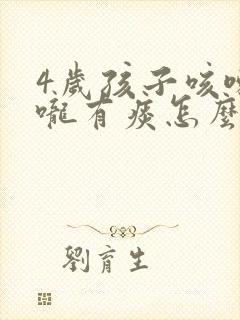 4歲孩子咳
嚨有痰怎麼
劉育生